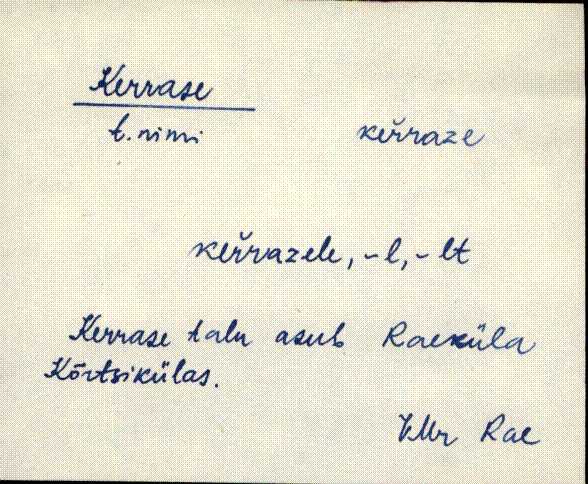 Kerrase
t. nimi kèř̌raze
kèř̌razele, -l, -lt
Kerrase talu asub Raeküla
Kõrtsikülas.
VMr Rae